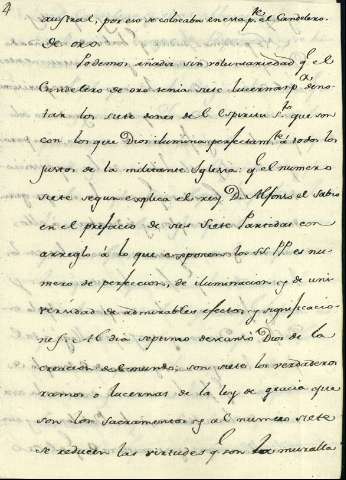 4
austral; por eso se colocaba en esta p.te el Candelero
de oro.
Podemos añadir sin voluntariedad q.e el
Candelero de oro tenia siete lucernas p.a deno-
tar los siete dones del Espiritu S.to que son
con los que Dios ilumina perfectam.te á todos los
justos de la militante Iglesia: q.e el numero
siete segun explica el rey D. Alfonso el Sabio
en el prefacio de sus Siete Partidas con
arreglo á lo que exponen los SS. PP. es nu-
mero de perfeccion, de iluminacion, y de uni-
versidad de admirables efectos, y significacio-
nes. Al dia septimo descansó Dios de la
creacion del mundo: son siete los verdaderos
ramos, ó lucernas de la ley de gracia que
son los sacramentos, y al numero siete
se reducen las virtudes q.e son la muralla